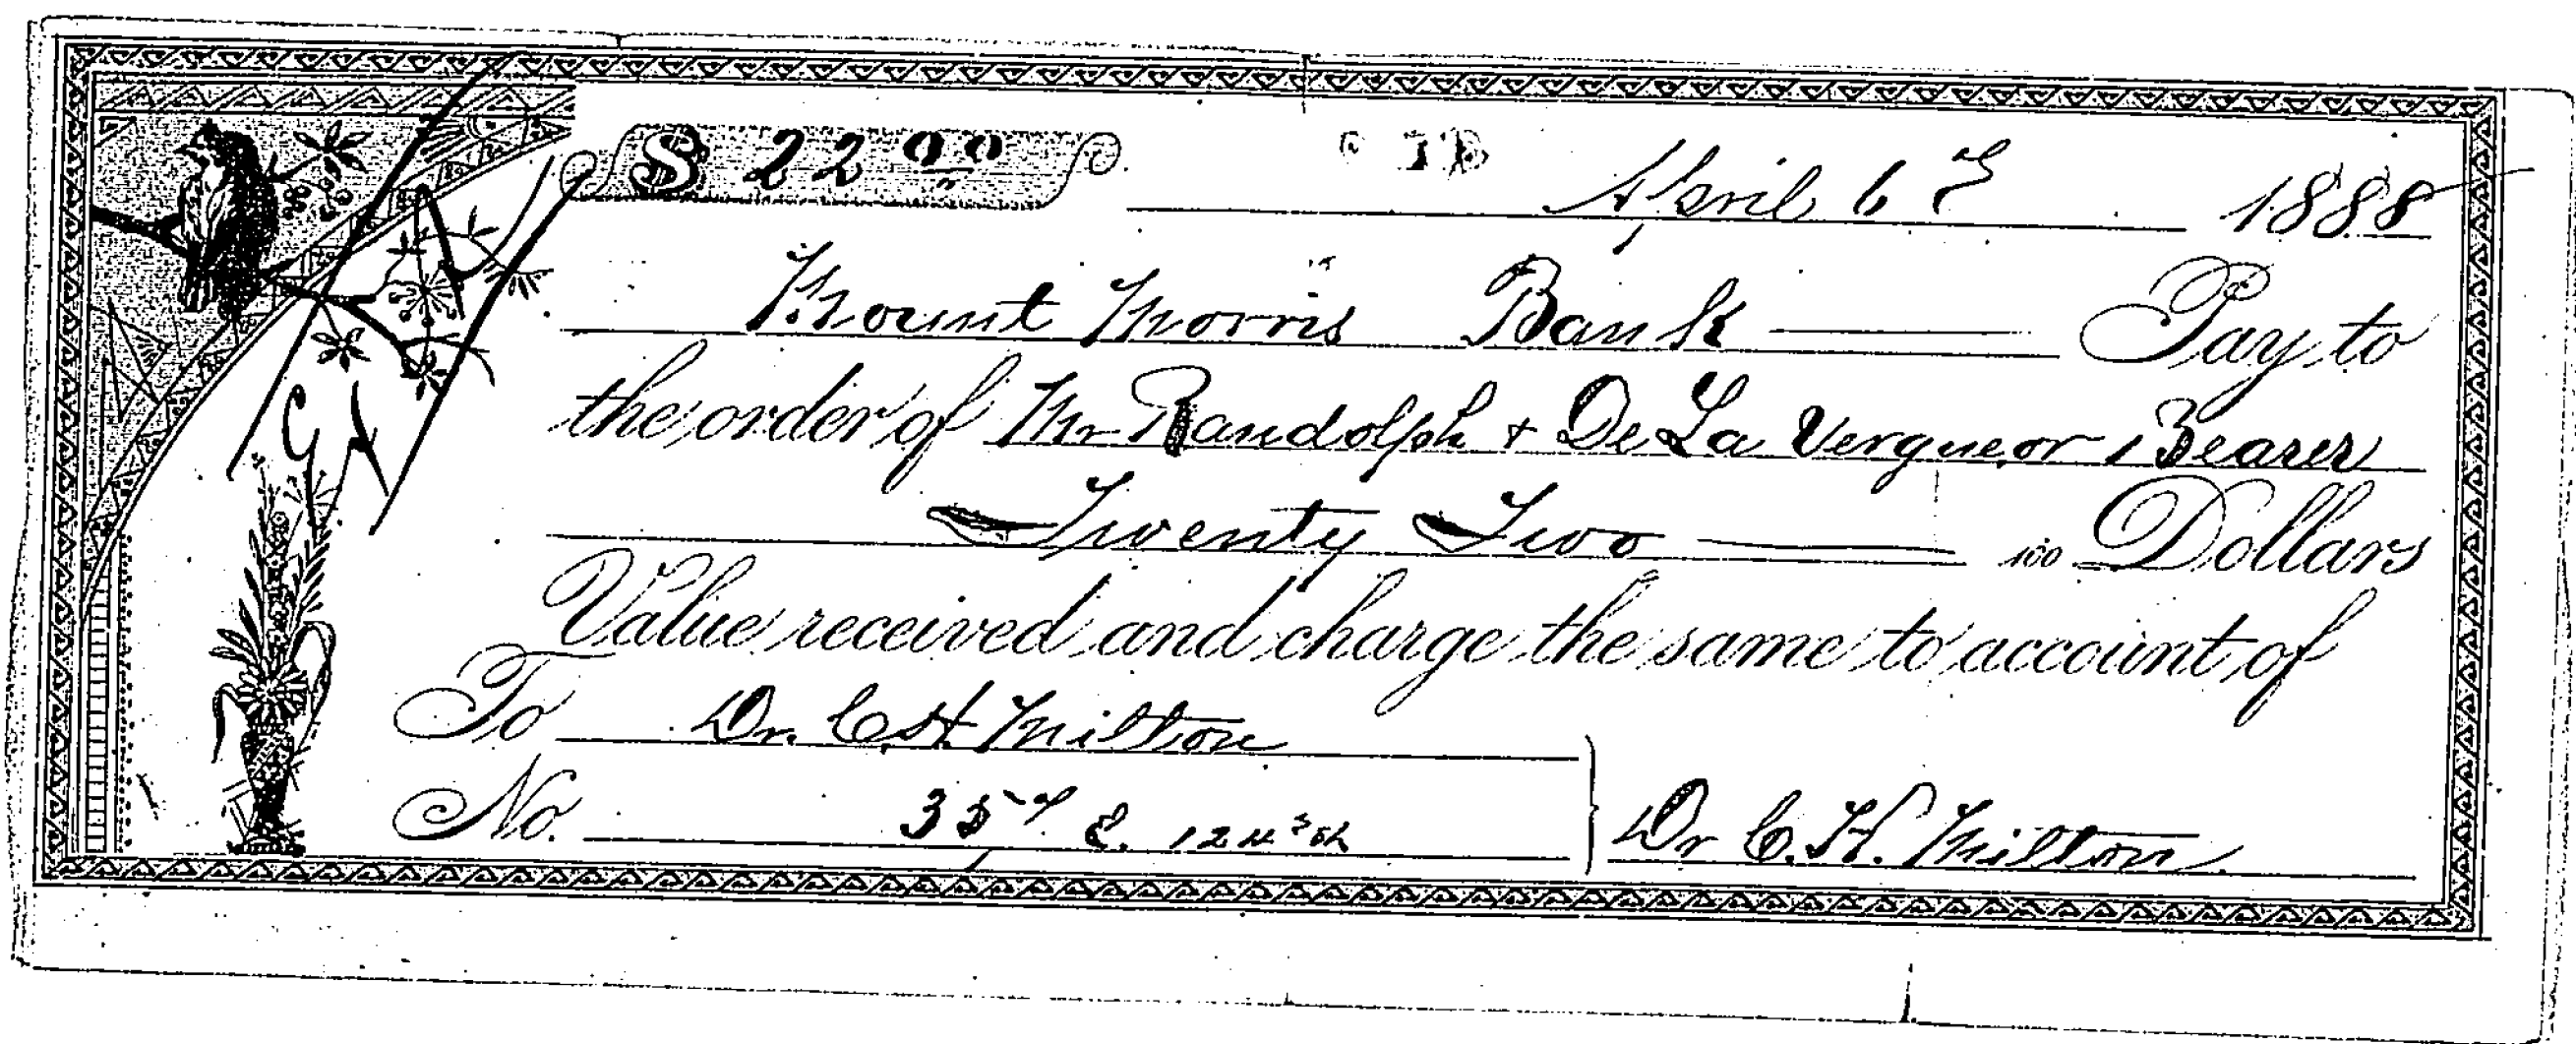 $ 22 00
April 6th 1888
Mount Morris Bank Pay to
the order of Mr Randolph + De La Vergne or Bearer
Twenty Two 100 Dollars
Value received and charge the same to account of
To Dr. C.H. Milton
No. 35 E. 124th Dr C. H. Milton